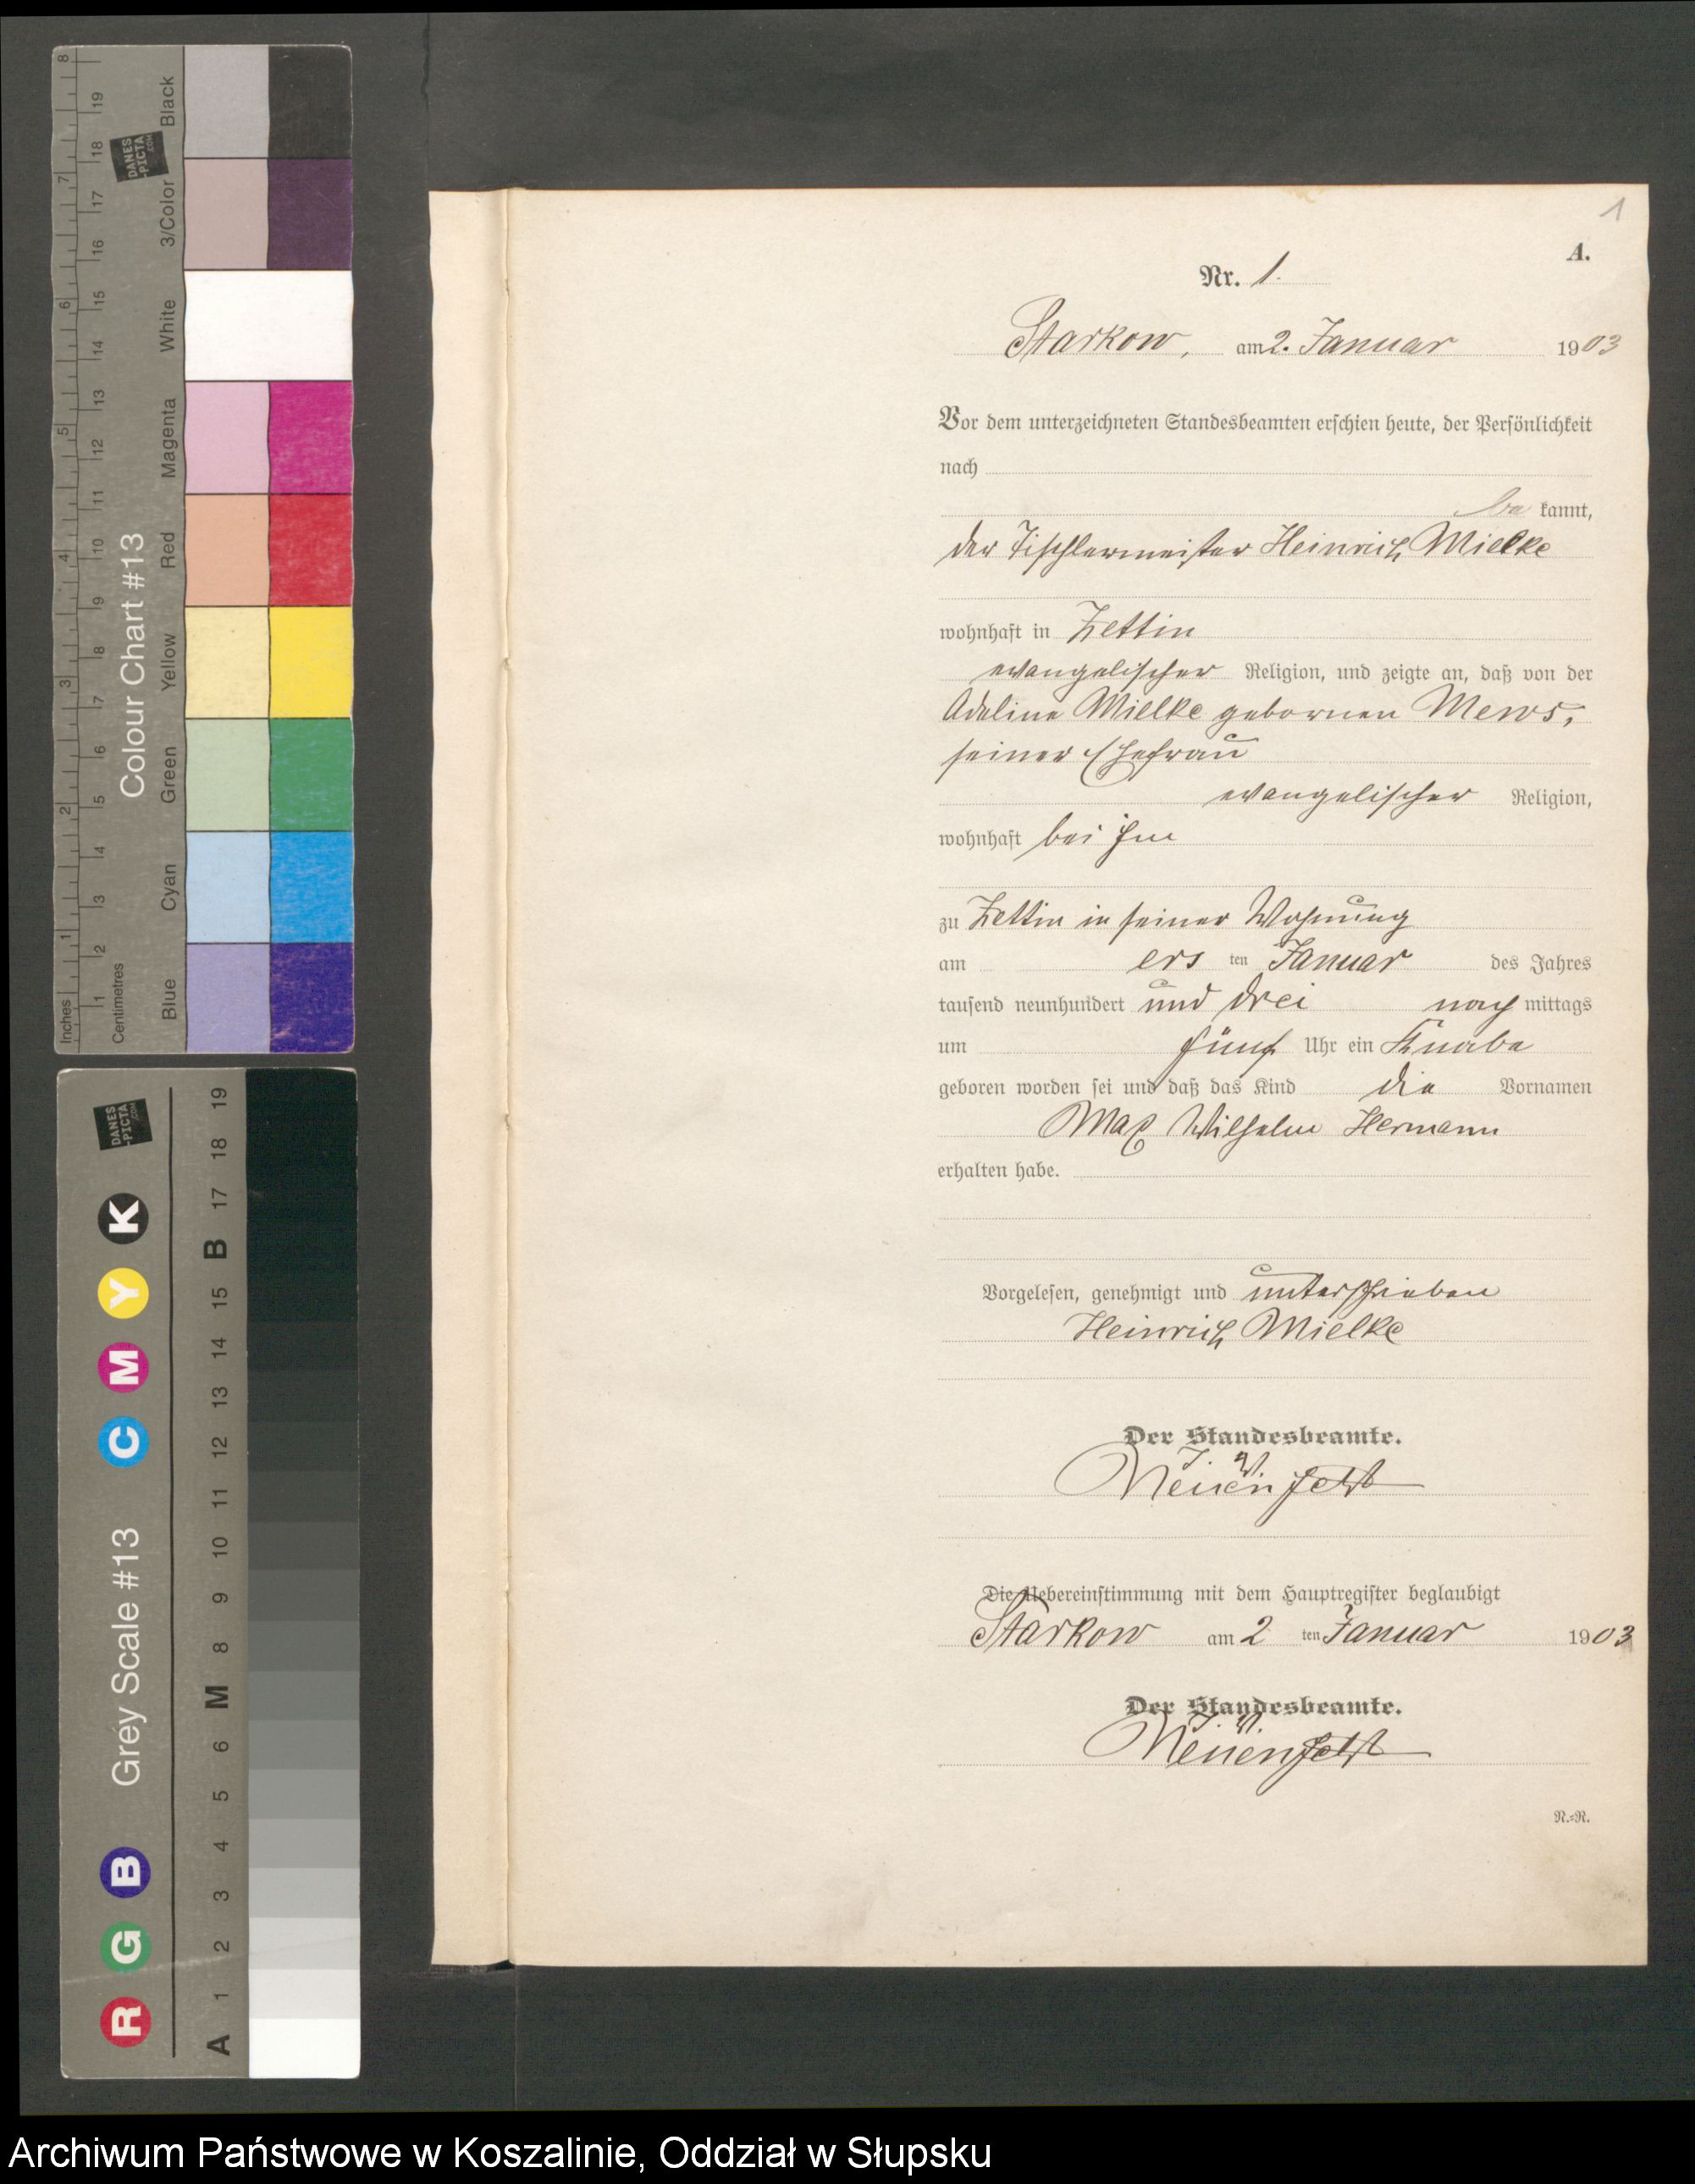 1
A.
Nr. 1.
Starkow, am 2. Januar 1903
Vor dem unterzeichneten Standesbeamten erschien heute, der Persönlichkeit
nach
be kannt,
der Tischlermeister Heinrich Mielke
wohnhaft in Zettin
evangelischer Religion, und zeigte an, daß von der
Adeline Mielke gebornen Mews,
seiner Ehefrau
evangelischer Religion,
wohnhaft bei ihm
zu Zettin in seiner Wohnung
am ers ten Januar des Jahres
tausend neunhundert und drei nach mittags
um fünf Uhr ein Knabe
geboren worden sei und daß das Kind die Vornamen
Max Wilhelm Hermann
erhalten habe.
Vorgelesen, genehmigt und unterschrieben
Heinrich Mielke
Der Standesbeamte.
I. V.
Neuenfeldt
Die Uebereinstimmung mit dem Hauptregister beglaubigt
Starkow am 2 ten Januar 1903
Der Standesbeamte.
I. V.
Neuenfeldt
N.=R.
Colour Chart #13
Blue Cyan Green Yellow Red Magenta White 3/Color Black
Inches 1 2 3 4 5 6 7 8
Centimetres 1 2 3 4 5 6 7 8 9 10 11 12 13 14 15 16 17 18 19
DANES
-PICTA
.COM
Grey Scale #13
R G B C M Y K
A 1 2 3 4 5 6 M 8 9 10 11 12 13 14 15 B 17 18 19
DANES
-PICTA
.COM
Archiwum Państwowe w Koszalinie, Oddział w Słupsku